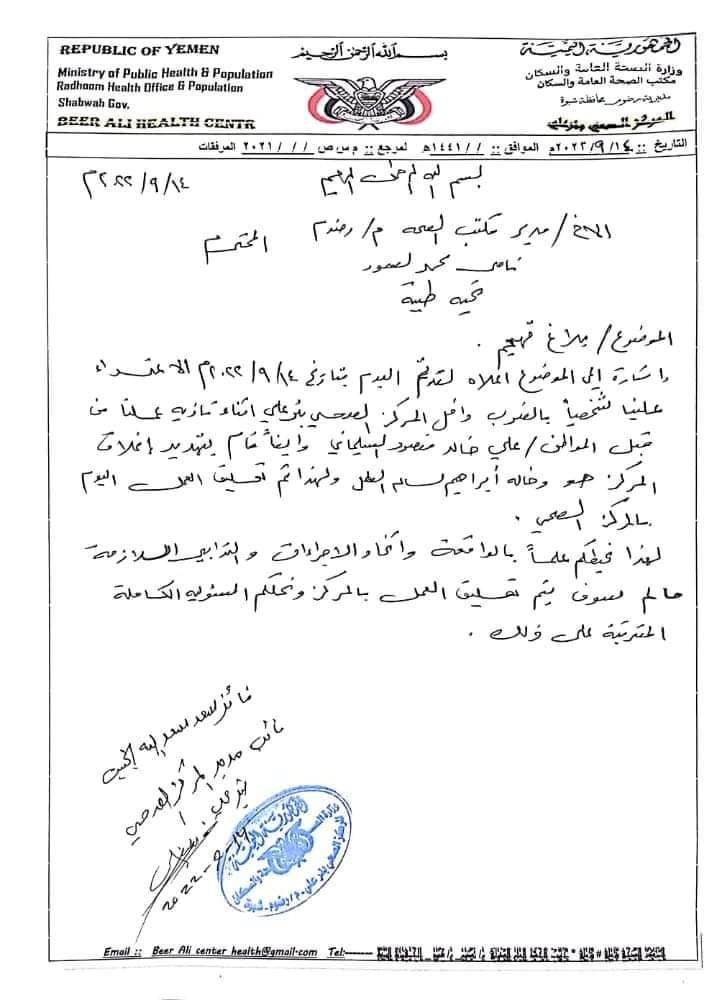 REPUBLIC OF YEMEN
Ministry of Public Health & Population
Radhoom Health Office & Population
Shabwah Gov.
BEER ALI HEALTH CENTR
بسم الله الرحمن الرحيم
الجمهورية اليمنية
وزارة الصحة العامة والسكان
مكتب الصحة العامة والسكان
مديرية رضوم محافظة شبوة
المركز الصحي بئر علي
التاريخ :: ٢٠٢٢/٩/١٤م الموافق :: / / ١٤٤١هـ المرجع :: م س ص / / / ٢٠٢١ المرفقات
بسم الله الرحمن الرحيم
٢٠٢٢/٩/١٤م
الاخ/ مدير مكتب الصحة م/ رضوم المحترم
محمد لصور
تحيه طيبة
الموضوع/ بلاغ تهجم .
إشارة إلى الموضوع اعلاه لقد تم اليوم بتاريخ ٢٠٢٢/٩/١٤م الاعتداء
علينا شخصياً بالضرب داخل المركز الصحي بئر علي اثناء تأديه عملنا من
قبل المواطن/ علي خالد منصور السليماني وايضاً قام بتهديد بإغلاق
المركز هو وخاله أبراهيم سالم ولهذا تم تعليق العمل اليوم
بالمركز الصحي .
لهذا نحيطكم علماً بالواقعة واتخاذ الاجراءات والتدابير اللازمة
مالم سوف يتم تعليق العمل بالمركز ونحملكم المسئوليه الكاملة
المترتبة على ذلك .
فائز سعد سعد الله
نائب مدير المركز الصحي
بئر علي
2022-9-14
الجمهورية اليمنية
وزارة الصحة العامة والسكان
المركز الصحي بئر علي - م/رضوم - شبوة
Email :: Beer Ali center health@gmail.com Tel:------